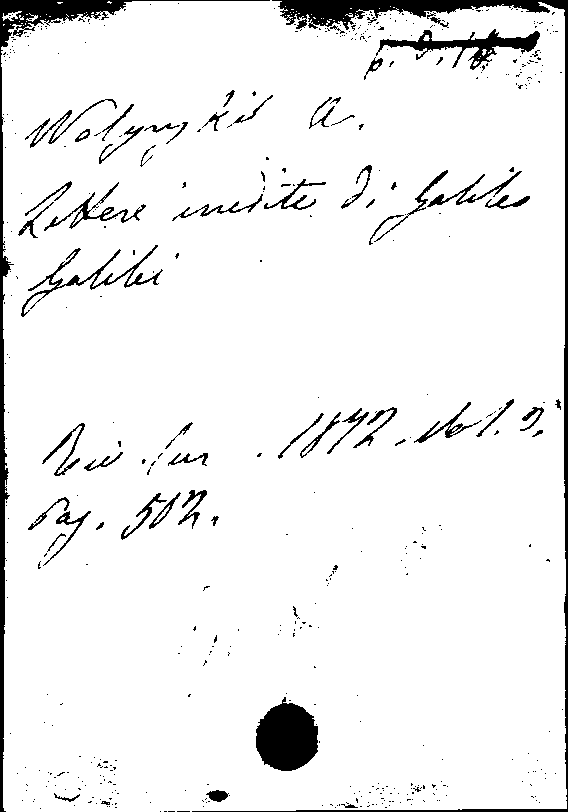 Wolynskis A.
Lettere inedite di Galileo
Galilei
1872. Vol. 3.
Pag. 502.